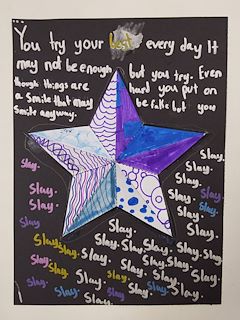 You try your best every day It
may not be enough but you try. Even
though things are hard you put on
a smile that may be fake but you
smile anyway.
Slay.
Slay. Slay.
Slay. Slay. Slay.
Slay. Slay. Slay.
Slay. Slay. Slay. Slay.
Slay. Slay. Slay. Slay. Slay. Slay.
Slay. Slay. Slay. Slay. Slay.
Slay. Slay. Slay. Slay. Slay.
Slay. Slay. Slay. Slay.
Slay.